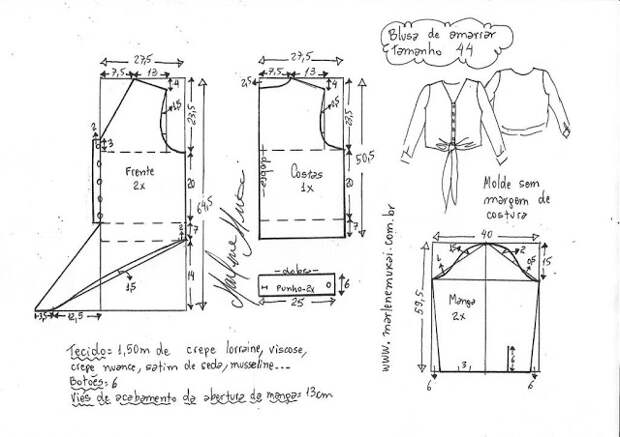 Blusa de amarrar
Tamanho 44
27,5
7,5
13
4
1,5
23,5
2
3
Frente
2x
20
64,5
7
14
1,5
3,5
12,5
27,5
7,5
13
2,5
4
1,5
23,5
dobra
tecido
Costas
1x
20
50,5
7
dobra
Punho-2x
6
25
Marlene Mukai
www.marlenemukai.com.br
Molde sem
margem de
costura
40
1,5
2
0,5
15
Manga
2x
59,5
3
6
6
Tecido= 1,50m de crepe lorraine, viscose,
crepe nuance, satim de seda, musseline...
Botões= 6
Viés de acabamento da abertura da manga= 13cm